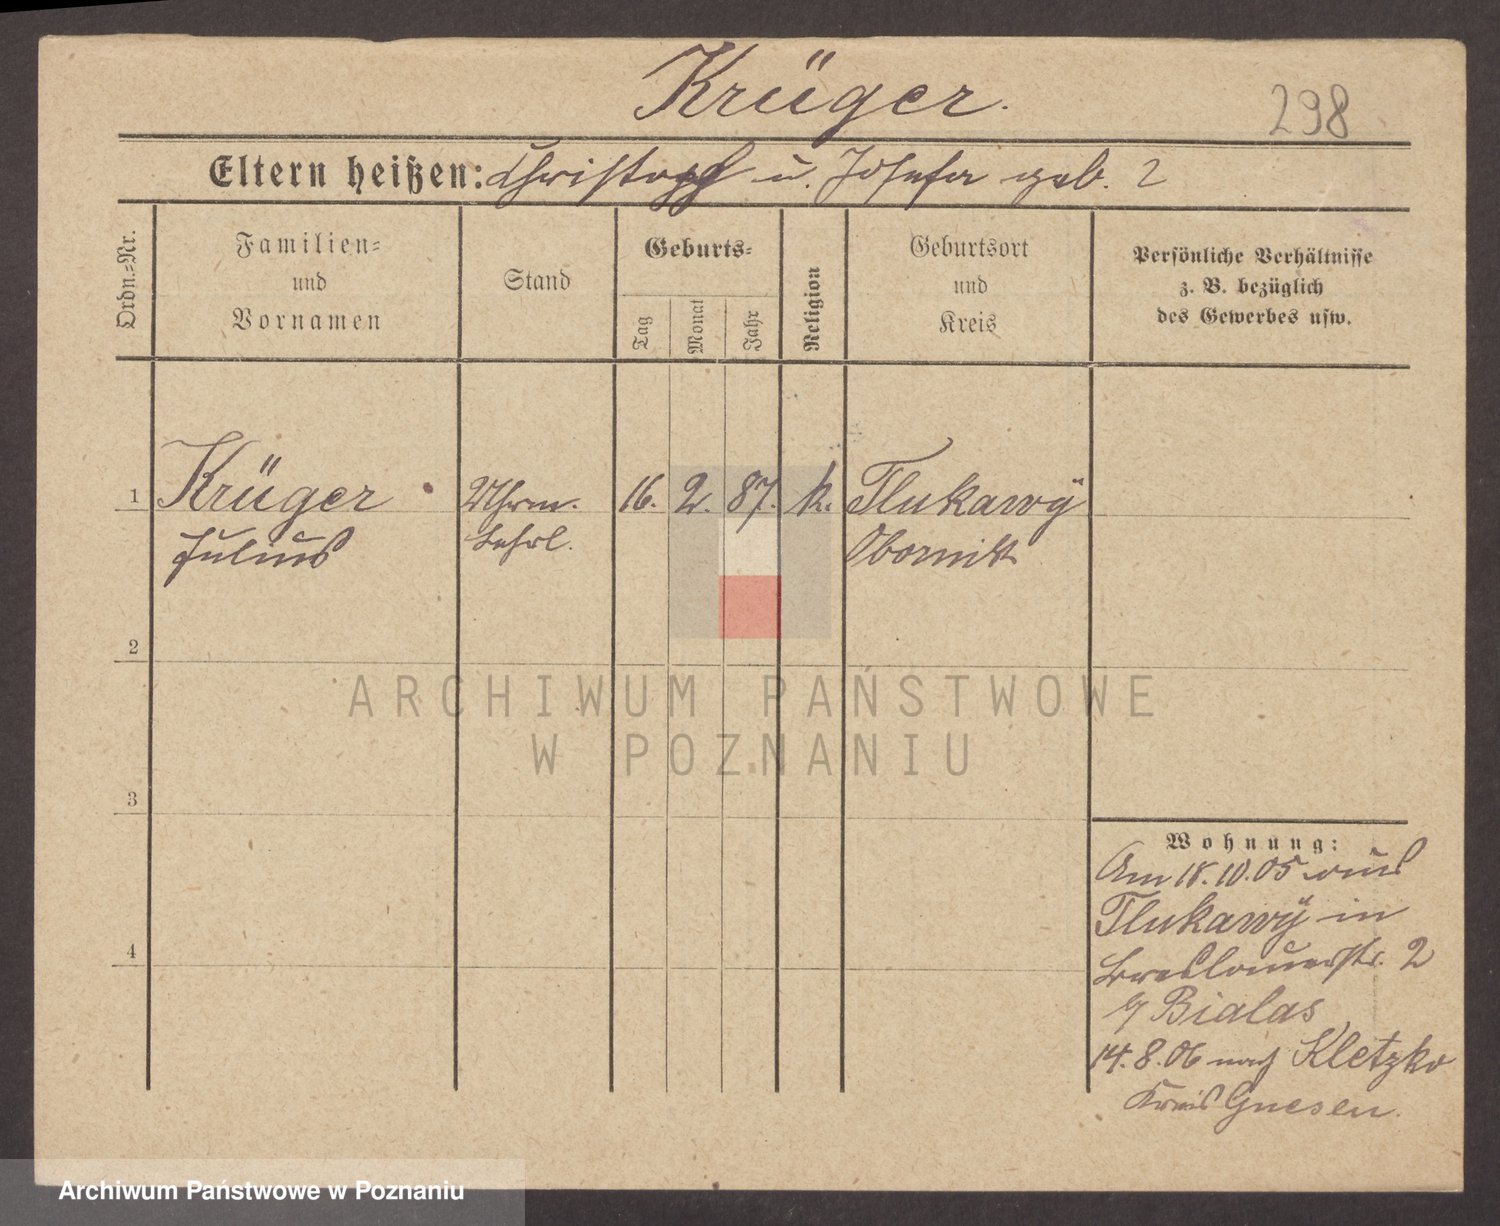 Krüger.
298
Eltern heißen: Christoph u. Josefa geb. ?
Ordn.=Nr.
Familien=
und
Vornamen
Stand
Geburts=
Tag
Monat
Jahr
Religion
Geburtsort
und
Kreis
Persönliche Verhältnisse
z. B. bezüglich
des Gewerbes usw.
1 Krüger Uhrm. 16. 2. 87. k. Tlukawy
Julius Lehrl. Obornik
2
3
4
Wohnung:
Am 18.10.05 aus
Tlukawy in
Breslauerstr. 2
b/ Bialas
14.8.06 nach Kletzko
Kreis Gnesen.
ARCHIWUM PAŃSTWOWE
W POZNANIU
Archiwum Państwowe w Poznaniu